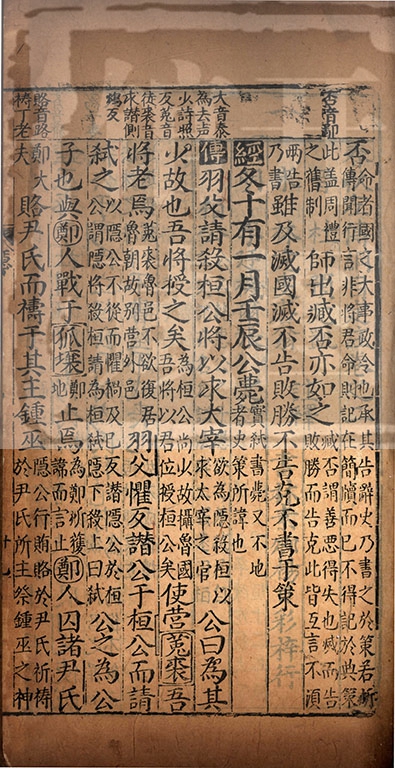 否音鄙
否命者國之大事政令也承其告辭史乃書之於策若所
傳聞行言非將君命則記在簡牘而已不得記於典策
此盖周禮
之舊制
師出臧否亦如之
臧否謂善惡得失也滅而告
敗勝而告克此皆互言不須
兩告
乃書
雖及滅國滅不告敗勝不告克不書于策
經冬十有一月壬辰公薨
實弒書薨又不地
者史策所諱也
大音泰
為去声
少詩照
反菟音
徒裘音
求譖側
鴆反
傳羽父請殺桓公將以求大宰
欲為隱殺桓以
求太宰之官
公曰為其
少故也吾將授之矣
為桓公尚少故攝魯國
吾將以君位授桓公矣
使營菟裘吾
將老焉
菟裘魯邑不欲復居
魯朝故別營外邑
羽父懼反譖公于桓公而請
弒之
以隱公不從而懼禍及已反譖隱公於桓
公謂隱將殺桓請為桓弒隱下殺上曰弒
公之為公
子也與鄭人戰于狐壤
鄭
地
止焉
為鄭所獲
諱而言止
鄭人囚諸尹氏
賂音路
禱丁老
鄭大
夫
賂尹氏而禱于其主鍾巫
隱公行賄賂於尹氏祈禱
於尹氏所主祭鍾巫之神